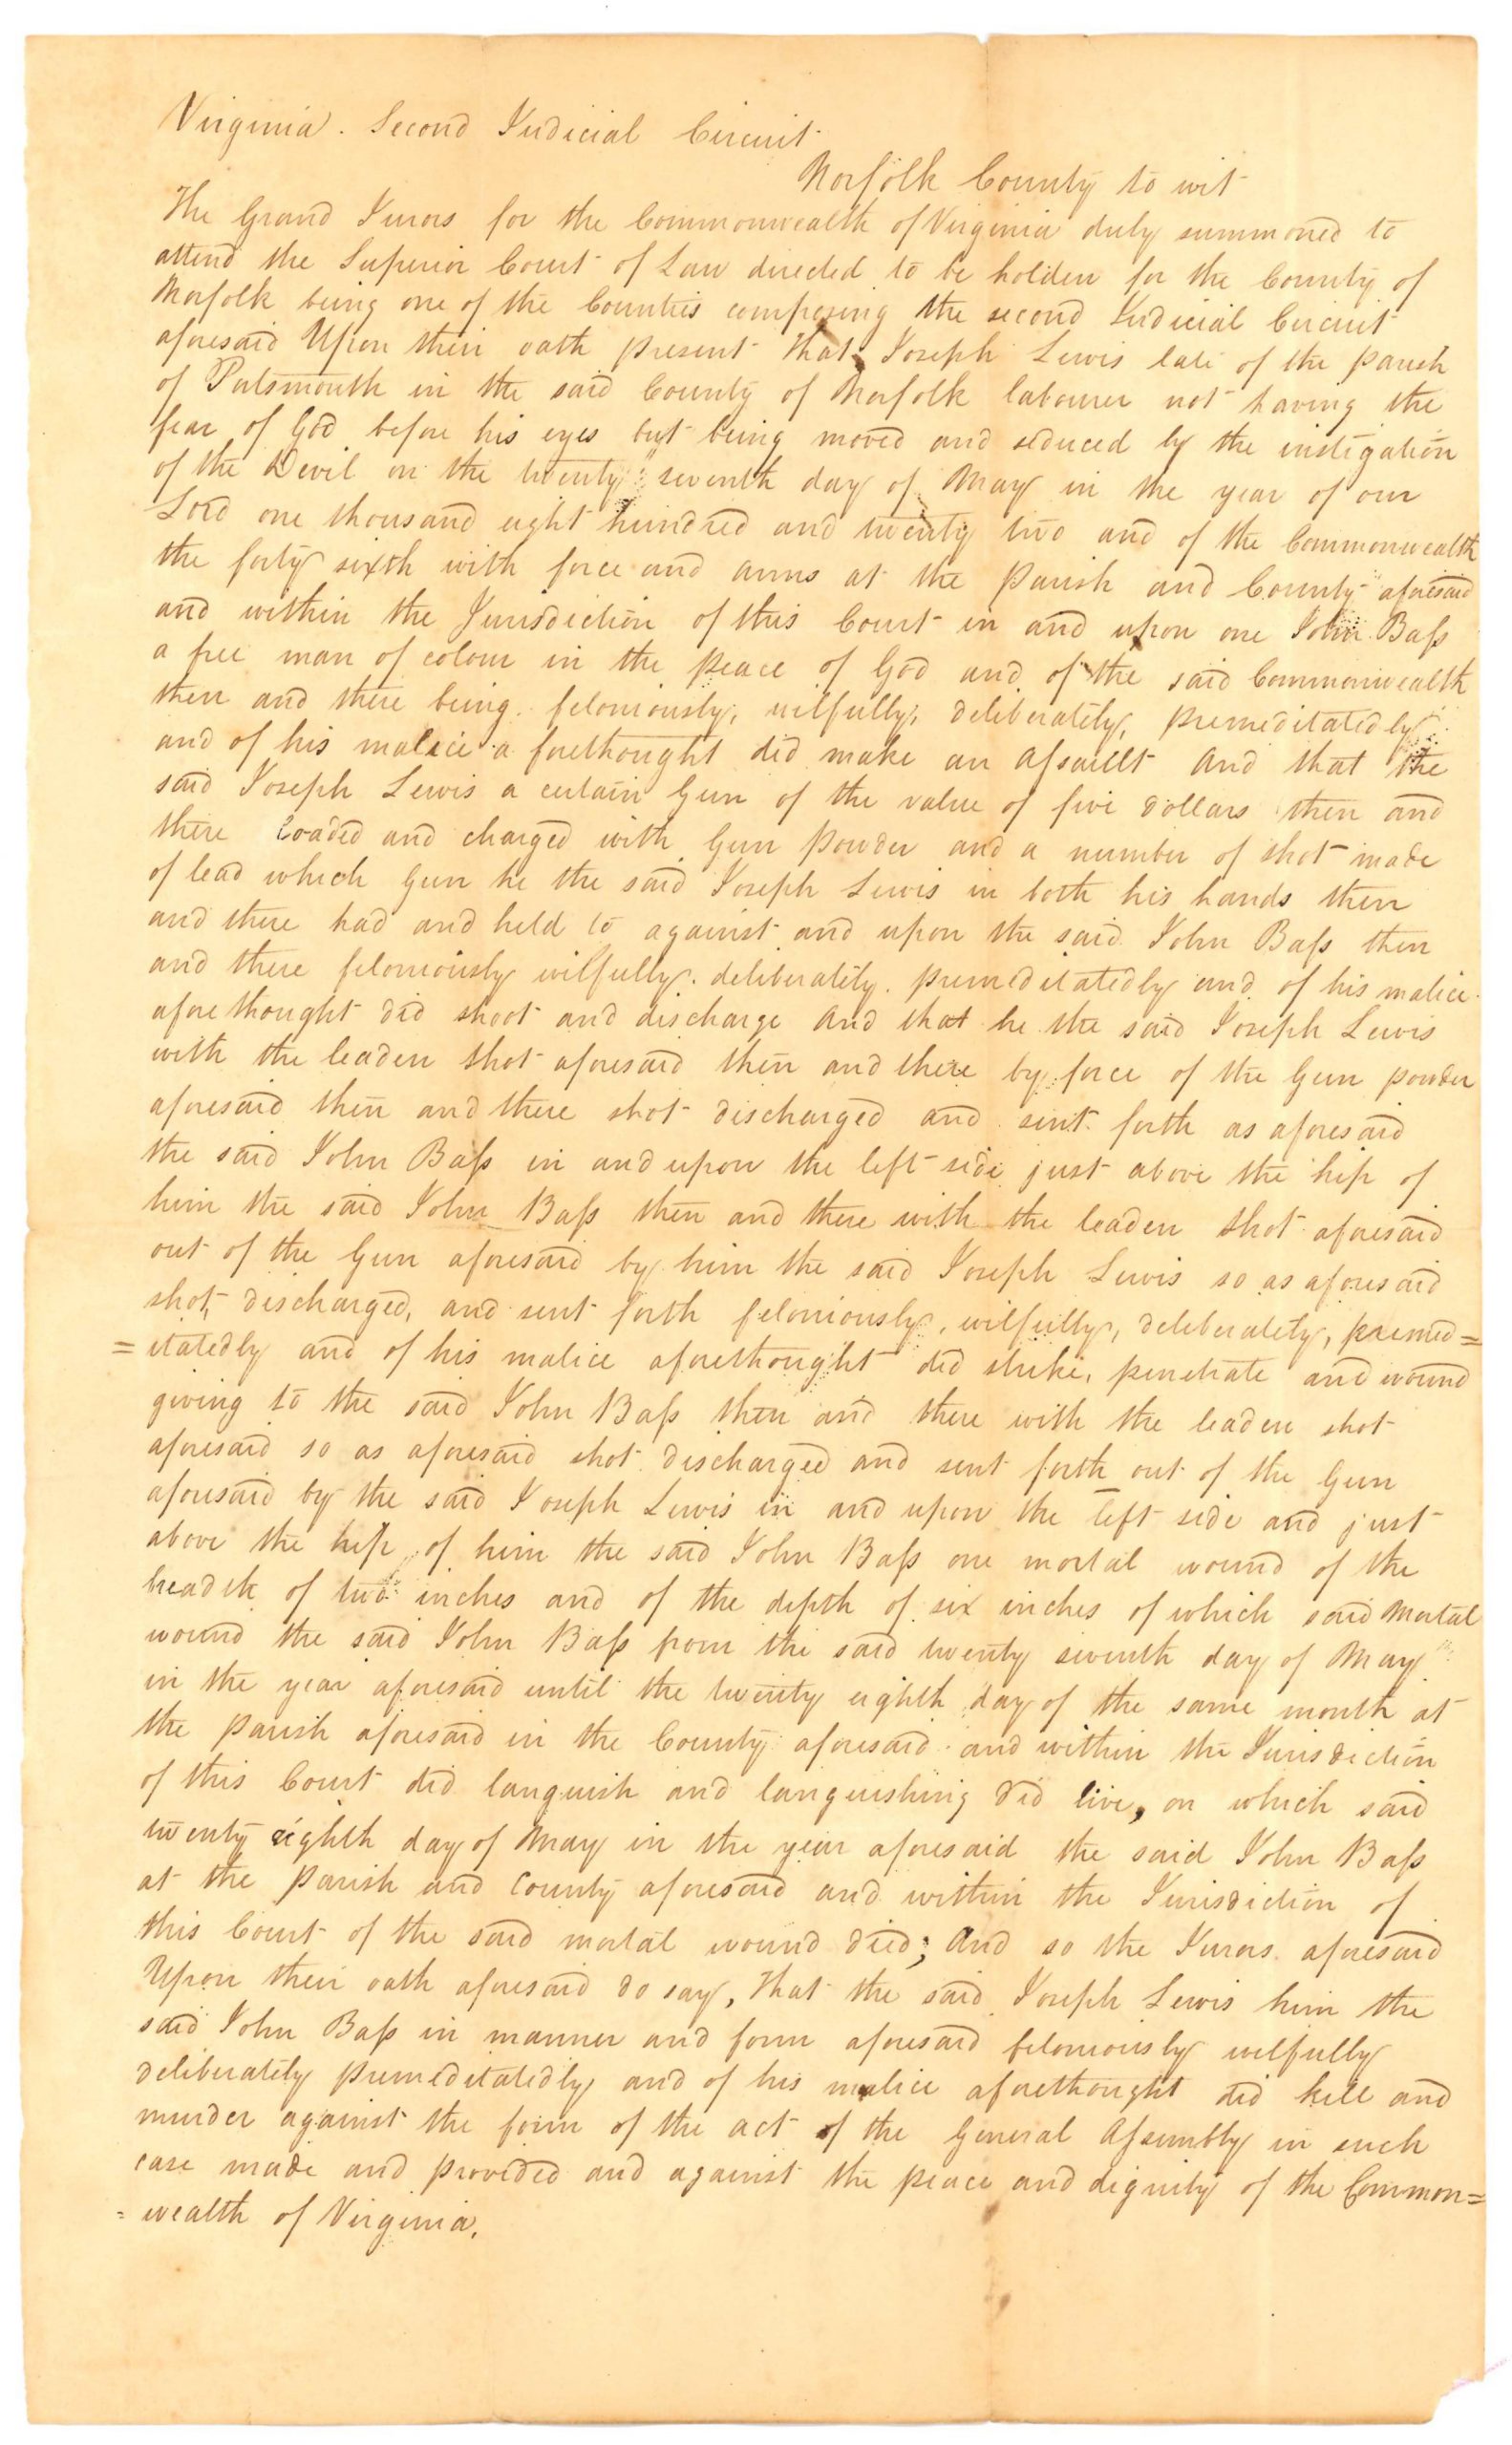 Virginia. Second Judicial Circuit
Norfolk County to wit
The Grand Jurors for the Commonwealth of Virginia duly summoned to
attend the Superior Court of Law directed to be holden for the County of
Norfolk being one of the Counties composing the second Judicial Circuit
aforesaid Upon their oath present That Joseph Lewis late of the parish
of Potsmouth in the said County of Norfolk labourer not having the
fear of God before his eyes but being moved and seduced by the instigation
of the Devil on the twenty seventh day of May in the year of our
Lord one thousand eight hundred and twenty two and of the Commonwealth
the forty sixth with force and arms at the parish and County aforesaid
and within the Jurisdiction of this Court in and upon one John Baſs
a free man of colour in the peace of God and of the said Commonwealth
then and there being feloniously, wilfully, deliberately, premeditatedly
and of his malice a forethought did make an aſsault and that the
said Joseph Lewis a certain Gun of the value of five dollars then and
there loaded and charged with Gun powder and a number of shot made
of lead which Gun he the said Joseph Lewis in both his hands then
and there had and held to against and upon the said John Baſs then
and there feloniously wilfully. deliberately. premeditatedly and of his malice
aforethought did shoot and discharge and that he the said Joseph Lewis
with the leaden shot aforesaid then and there by force of the Gun powder
aforesaid then and there shot discharged and sent forth as aforesaid
the said John Baſs in and upon the left side just above the hip of
him the said John Baſs then and there with the leaden shot aforesaid
out of the Gun aforesaid by him the said Joseph Lewis so as aforesaid
shot, discharged, and sent forth feloniously, wilfully, deliberately, premed=
=itatedly and of his malice aforethought did strike, penetrate and wound
giving to the said John Baſs then and there with the leaden shot
aforesaid so as aforesaid shot discharged and sent forth out of the Gun
aforesaid by the said Joseph Lewis in and upon the left side and just
above the hip of him the said John Baſs one mortal wound of the
breadth of two inches and of the depth of six inches of which said mortal
wound the said John Baſs from the said twenty seventh day of May
in the year aforesaid until the twenty eighth day of the same month at
the parish aforesaid in the County aforesaid and within the Jurisdiction
of this Court did languish and languishing did live, on which said
twenty eighth day of May in the year aforesaid the said John Baſs
at the parish and County aforesaid and within the Jurisdiction of
this Court of the said mortal wound died; and so the Jurors aforesaid
Upon their oath aforesaid do say, that the said Joseph Lewis him the
said John Baſs in manner and form aforesaid feloniously wilfully
deliberately premeditatedly and of his malice aforethought did kill and
murder against the form of the act of the General Aſsembly in such
case made and provided and against the peace and dignity of the Common=
=wealth of Virginia.